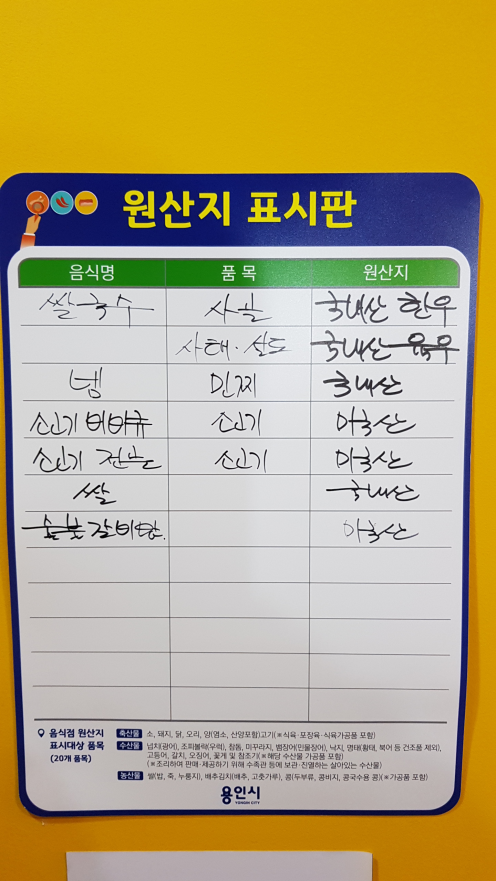 원산지 표시판
음식명 품 목 원산지
쌀국수 사골 국내산 한우
사태·양도 국내산 육우
넴 민찌 국내산
소고기 바비큐 소고기 미국산
소고기 전골 소고기 미국산
쌀 국내산
숯불갈비탕 미국산
음식점 원산지
표시대상 품목
(20개 품목)
축산물 소, 돼지, 닭, 오리, 양(염소, 산양포함)고기(※식육·포장육·식육가공품 포함)
수산물 넙치(광어), 조피볼락(우럭), 참돔, 미꾸라지, 뱀장어(민물장어), 낙지, 명태(황태, 북어 등 건조품 제외),
고등어, 갈치, 오징어, 꽃게 및 참조기(※해당 수산물 가공품 포함)
(※조리하여 판매·제공하기 위해 수족관 등에 보관·진열하는 살아있는 수산물)
농산물 쌀(밥, 죽, 누룽지), 배추김치(배추, 고춧가루), 콩(두부류, 콩비지, 콩국수용 콩)(※가공품 포함)
용인시
YONGIN CITY